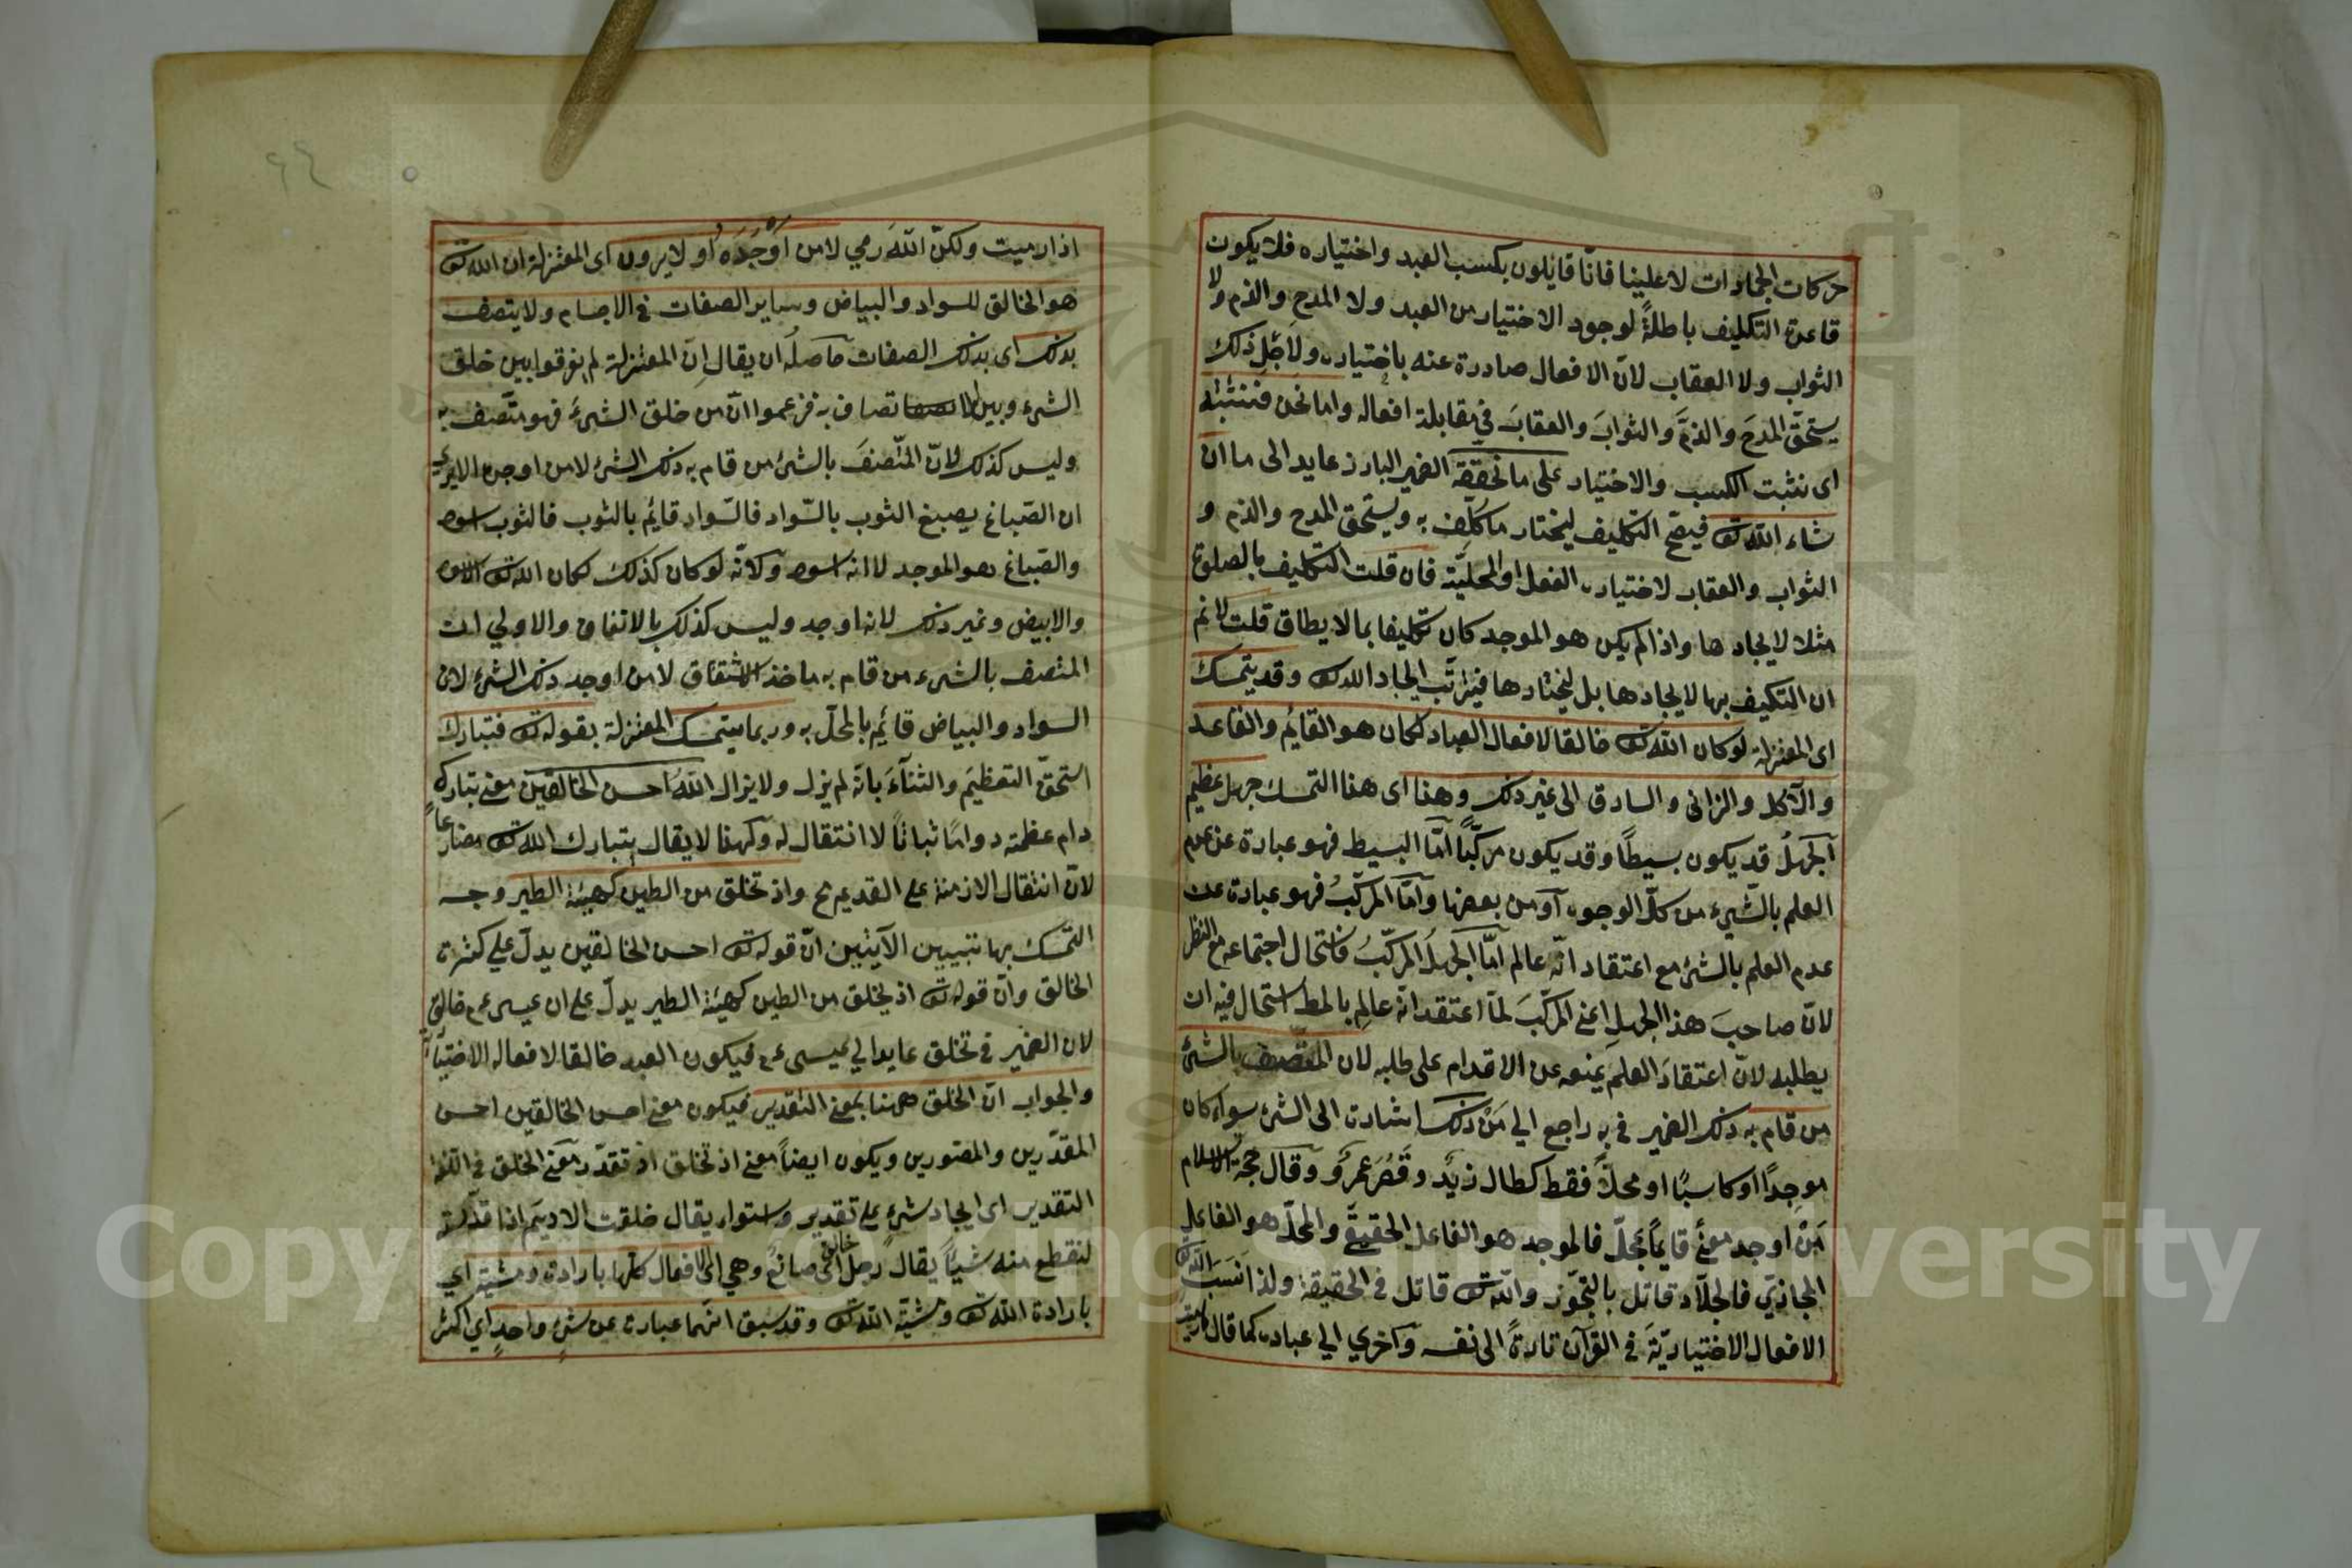 حركات الجمادات لا علينا فانّا قايلون بكسب العبد واختياره فلا يكون
قاعدة التكليف باطلةً لوجود الاختيار من العبد ولا المدح والذم ولا
الثواب ولا العقاب لانّ الافعال صادرة عنه باختياره ولاجْل ذلك
يستحقّ المدحَ والذمَّ والثوابَ والعقابَ في مقابلة افعاله واما نحن فنثبته
اى نثبت الكسب والاختيار على ما نحققه الضمير البارز عايد الى ما ان
شاء الله تع فيصّح التكليف ليختار ما كلّف به ويستحق المدح والذم و
الثواب والعقاب لاختياره الفعل او المحليّة فان قلت التكليف بالصلوة
مثلا لايجادها واذا لم يكن هو الموجد كان تكليفا بما لا يطاق قلت لا نم
ان التكيف بها لايجادها بل ليختارها فيترتّب ايجاد الله تع وقد يتمسك
اى المعتزلة لو كان الله تع خالقا لافعال العباد لكان هو القايم والقاعد
والآكل والزانى والسارق الى غير ذلك وهذا اى هذا التمسك جهل عظيم
آلجهلُ قد يكون بسيطًا وقد يكون مركّبًا امّا البسيط فهو عبارة عن عدم
العلم بالشّيء من كلّ الوجوه آو من بعضها وآمّا المركّبُ فهو عبارة عن
عدم العلم بالشئ مع اعتقاد انّه عالم امّا الجهلُ المركّبُ فاستحال اجتماعه مع النظر
لانّ صاحبَ هذا الجهلِ اعنى المركّبَ لمّا اعتقد انّه عالِم بالمط استحال فيه ان
يطلبه لانّ اعتقادَ العلم يمنعه عن الاقدام على طلبه لان المتّصف بالشئ
من قام به ذلك الضمير في به راجع الي مَنْ ذلك اشارة الى الشئ سواء كان
موجِدًا او كاسبًا او محلًّا فقط كطال زيدٌ وقَصُرَ عمرٌو وقال حجة الاسلام
مَنْ اوجد معنًى قايماً بمحلّ فالموجد هو الفاعل الحقيقىّ والمحلّ هو الفاعل
المجازىّ فالجلّاد قاتل بالتجّوز والله تع قاتل في الحقيقة ولذا نَسَبَ الله تع
الافعال الاختياريّةَ في القرآن تارةً الى نفسه وآخري الي عباده كما قال وما رميت
اذ رميت ولكنّ اللهَ رمي لا من اَوْجَدَهُ اَو لا يرون اى المعتزلة ان الله تع
هو الخالق للسواد والبياض وساير الصفات في الاجسام ولا يتصف
بذلك اى بذلك الصفات حآصلُه ان يقال اِنّ المعتزلة لم يفرقوا بين خلق
الشيء وبين الاتصاف به فزعموا انّ من خلق الشئَ فهو متّصف به
وليس كذلك لانّ المتّصفَ بالشئ من قام به ذلك الشئ لا من اوجده الا يرى
ان الصّباغ يصبغ الثوب بالسّواد فالسّواد قايم بالثوب فالثوب اسود
والصّباغ هو الموجد لا انه اسود وَلانّه لو كان كذلك لكان الله تع الاسود
والابيض وغير ذلك لانه اوجد وليس كذلك بالاتفاق والاولي ان
المتصف بالشيء من قام به ماخذ الاشتقاق لا من اوجد ذلك الشئ لان
السواد والبياض قائم بالمحلّ به وربما يتمسك المعتزلة بقوله تع فتبارك
استحقّ التعظيمَ والثنآءَ بانّه لم يزل ولا يزال اللهُ احسن الخالقين معنى تبارك
دام عظمته دوامًا ثباتاً لا انتقال له ولهذا لا يقال يتبارك الله تع مضارعاً
لانّ انتقال الازمنة على القديم مح واذ تخلق من الطين كهيئة الطير وجه
التمّسك بها تبيين الآيتين انّ قوله تع احسن الخالقين يدلّ علي كثرة
الخالق وانّ قوله تع اذ تخلق من الطين كهيئة الطير يدلّ على ان عيسى عم خالق
لان الضمير في تخلق عايد الي عيسى عم فيكون العبد خالقا لافعاله الاختيارية
والجواب انّ الخلق ههنا بمعنى التقدير فيكون معنى احسن الخالقين احسن
المقدّرين والمصّورين ويكون ايضاً معنى اذ تخلق اذ تقدّر ومعنى الخلق في اللغة
التقدير اى ايجاد شيءٍ على تقدير واستواء يقال خلقت الاديم اذا قدّرته
لتقطع منه شيئاً يقال رجل خالق اى صانع وهي اى الافعال كلّها بارادته ومشيته اي
بارادة الله تع ومشيّة الله تع وقد سبق انّهما عبارة عن شئٍ واحدٍ اي اكثر
٦٤
Copyright © King Saud University